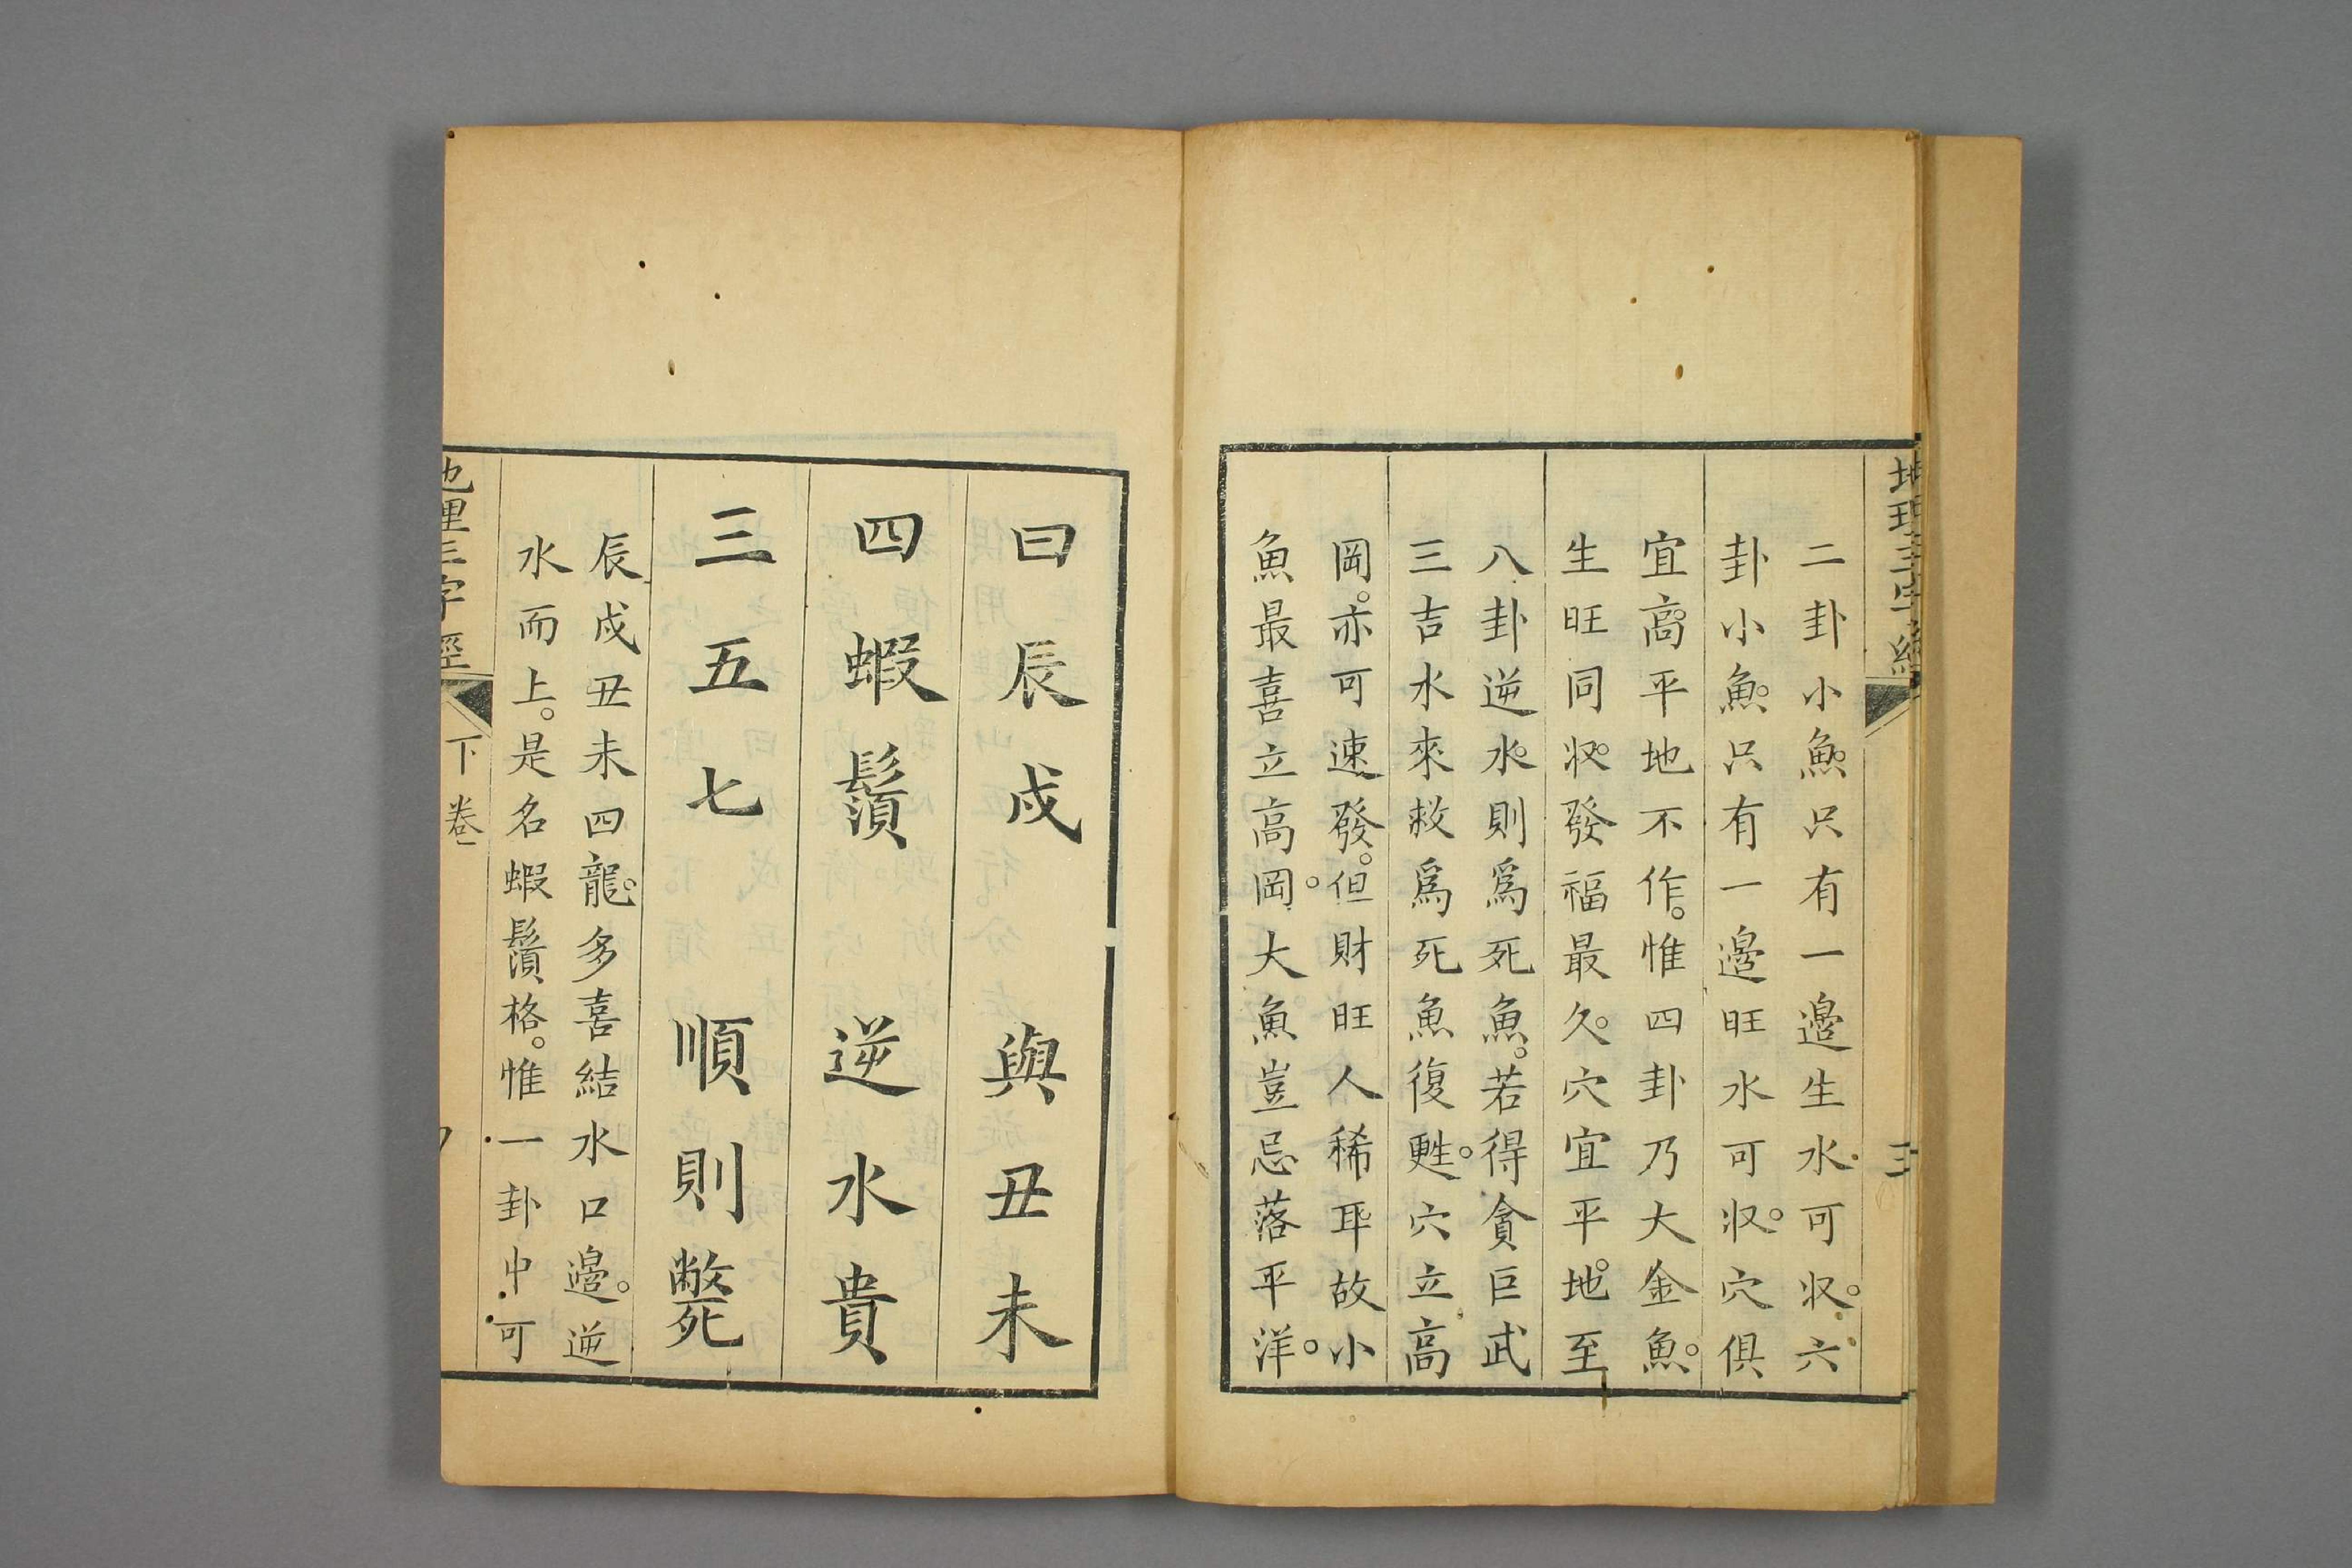 地理三字經
三
二卦小魚。只有一邊生水可收。六
卦小魚。只有一邊旺水可收。穴俱
宜高。平地不作。惟四卦乃大金魚。
生旺同收。發福最久。穴宜平地。至
八卦逆水。則為死魚。若得貪巨武
三吉水來救。為死魚復甦。穴立高
岡。亦可速發。但財旺人稀耳。故小
魚最喜立高岡。大魚豈忌落平洋。
曰辰戍 與丑未
四蝦鬚 逆水貴
三五七 順則斃
辰戍丑未四龍。多喜結水口邊。逆
水而上。是名蝦鬚格。惟一卦中可
地理三字經
下卷